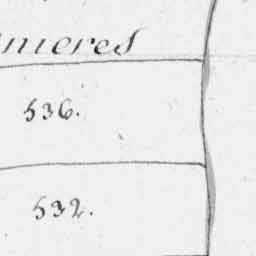 nieres
536.
532.